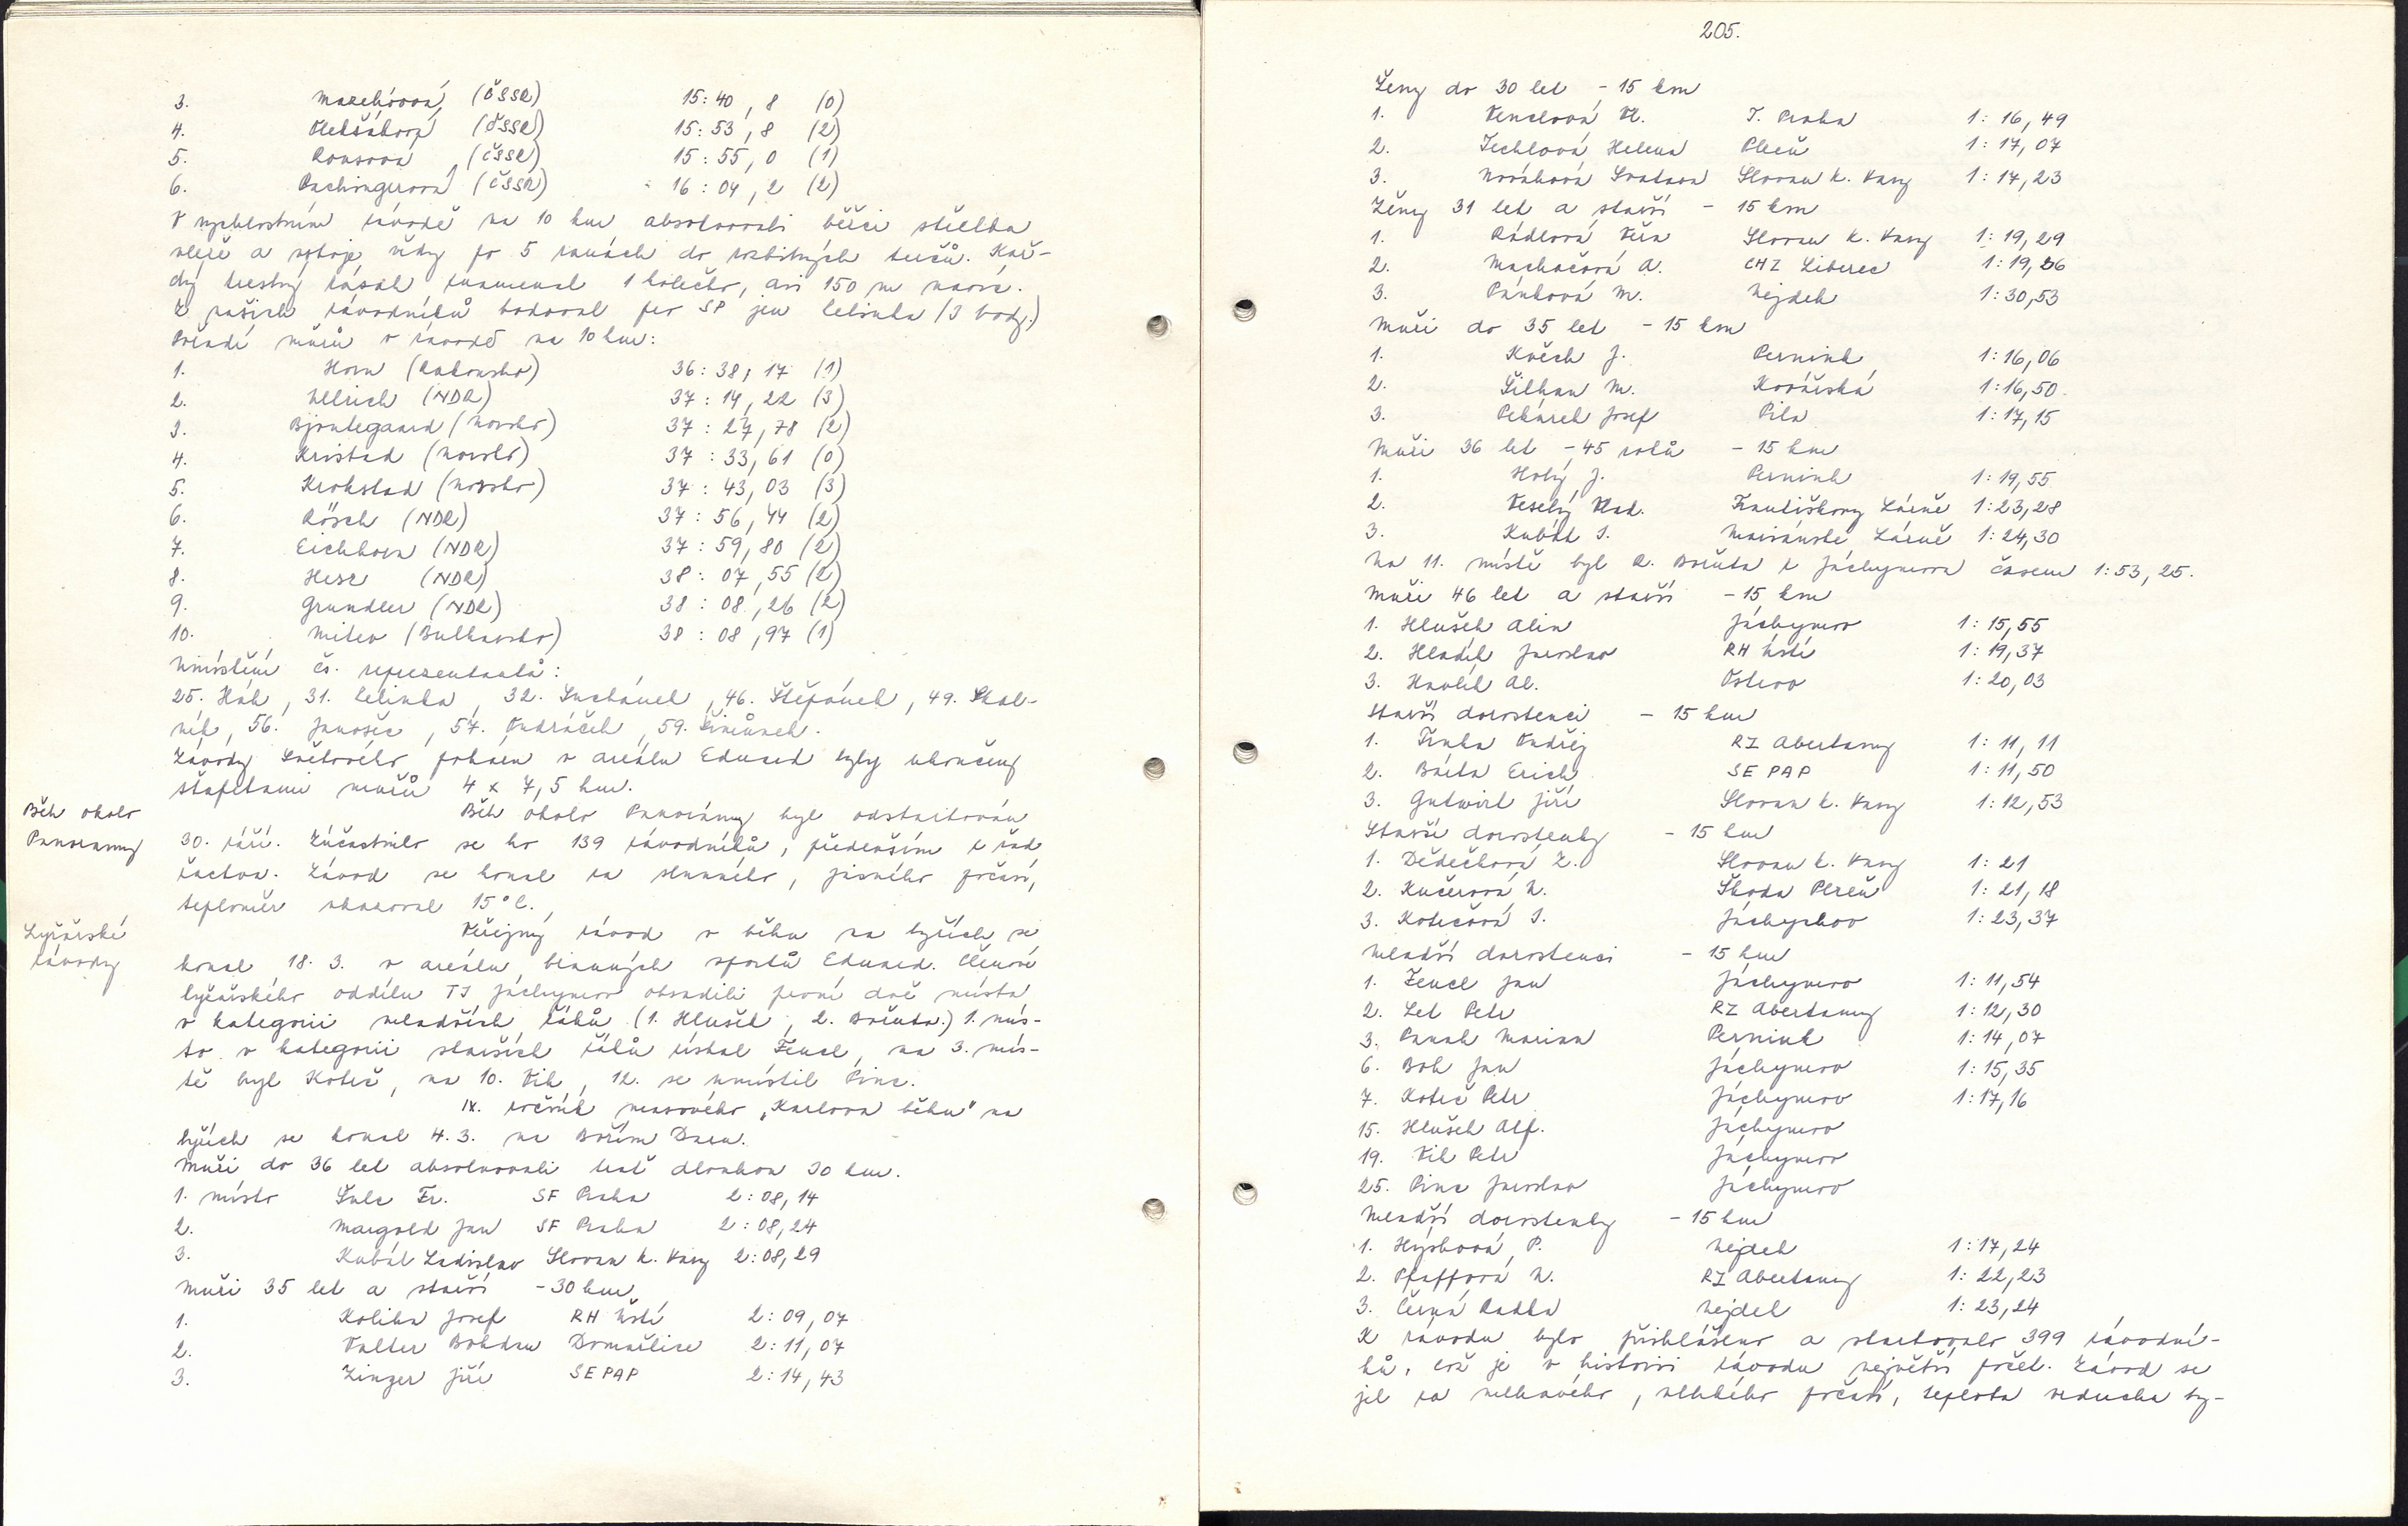 3. Marešová (ČSSR) 15:40,8 (0)
4. (ČSSR) 15:53,8 (2)
5. Rousová (ČSSR) 15:55,0 (1)
6. Pachingerová (ČSSR) 16:04,2 (2)
V rychlostním závodě na 10 km absolvovali běžci střelbu
vleže a vstoje vždy po 5 ranách do rozbitných terčů. Kaž-
dý trestný zásah znamenal 1 kolečko, asi 150 m navíc.
Z našich závodníků bodoval pro SP jen Celinka /3 body.)
Pořadí mužů v závodě na 10 km:
1. Horn (Rakousko) 36:38,17 (1)
2. Ullrich (NDR) 37:14,22 (3)
3. Bjontegaard (Norsko) 37:27,78 (2)
4. Kristad (Norsko) 37:33,61 (0)
5. Krokstad (Norsko) 37:43,03 (3)
6. Rösch (NDR) 37:56,44 (2)
7. Eichhorn (NDR) 37:59,80 (2)
8. Hess (NDR) 38:07,55 (2)
9. Grundler (NDR) 38:08,26 (2)
10. Mitev (Bulharsko) 38:08,97 (1)
Umístění čs. reprezentantů:
25. Hák, 31. Celinka, 32. Suchánek, 46. Štěpánek, 49. Skal-
ník, 56. Janošec, 57. Ondráček, 59. Šimůnek.
Závody Světového poháru v areálu Eduard byly ukončeny
štafetami mužů 4 x 7,5 km.
Běh okolo
Panoramy
Běh okolo Panorámy byl odstartován
30. září. Zúčastnilo se ho 139 závodníků, především z řad
žactva. Závod se konal za slunného, jasného počasí,
teploměr ukazoval 15°C.
Lyžařské
závody
Veřejný závod v běhu na lyžích se
konal 18. 3. v areálu branných sportů Eduard. Členové
lyžařského oddílu TJ Jáchymov obsadili první dvě místa
v kategorii mladších žáků (1. Hlušek, 2. Bořuta.) 1. mís-
to v kategorii starších žáků získal Fencl, na 3. mís-
tě byl Koteč, na 10. Vik, 12. se umístil Pinc.
IX. ročník masového „Karlova běhu" na
lyžích se konal 4. 3. na Božím Daru.
Muži do 36 let absolvovali trať dlouhou 30 km.
1. místo Šulc Fr. SF Praha 2:08,14
2. Margold Jan SF Praha 2:08,24
3. Kubát Ladislav Slovan K. Vary 2:08,29
Muži 35 let a starší - 30 km
1. Koliha Josef RH Ústí 2:09,07
2. Valter Bohdan Domažlice 2:11,07
3. Zinger Jiří SEPAP 2:14,43
205.
Ženy do 30 let - 15 km
1. Venclová Vl. T. Praha 1:16,49
2. Techlová Helena Plzeň 1:17,07
3. Nováková Svatava Slovan K. Vary 1:17,23
Ženy 31 let a starší - 15 km
1. Rádlová Věra Slovan K. Vary 1:19,29
2. Machačová A. CHZ Liberec 1:19,56
3. Pánková M. Nejdek 1:30,53
Muži do 35 let - 15 km
1. Květch J. Pernink 1:16,06
2. Šilhan M. Kovářská 1:16,50
3. Pekárek Josef Pila 1:17,15
Muži 36 let - 45 roků - 15 km
1. Holý J. Pernink 1:19,55
2. Veselý Vlad. Františkovy Lázně 1:23,28
3. Kubát S. Mariánské Lázně 1:24,30
Na 11. místě byl R. Bořuta z Jáchymova časem 1:53,25.
Muži 46 let a starší - 15 km
1. Hlušek Alin Jáchymov 1:15,55
2. Hladík Jaroslav RH Ústí 1:19,37
3. Havlík Al. Ostrov 1:20,03
Starší dorostenci - 15 km
1. Trnka Ondřej RZ Abertamy 1:11,11
2. Bárta Erich SEPAP 1:11,50
3. Gutwirt Jiří Slovan K. Vary 1:12,53
Starší dorostenky - 15 km
1. Dědečková Z. Slovan K. Vary 1:21
2. Kučerová N. Škoda Plzeň 1:21,18
3. Kotečová S. Jáchymov 1:23,37
Mladší dorostenci - 15 km
1. Fencl Jan Jáchymov 1:11,54
2. Let Petr RZ Abertamy 1:12,30
3. Panak Marian Pernink 1:14,07
6. Bok Jan Jáchymov 1:15,35
7. Koteč Petr Jáchymov 1:17,16
15. Hlušek Alf. Jáchymov
19. Vik Petr Jáchymov
25. Pinc Jaroslav Jáchymov
Mladší dorostenky - 15 km
1. Hýsková P. Nejdek 1:17,24
2. Pfaffová N. RZ Abertamy 1:22,23
3. Černá Radka Nejdek 1:23,24
K závodu bylo přihlášeno a startovalo 399 závodní-
ků, což je v historii závodu největší počet. Závod se
jel za mlhavého, vlhkého počasí, teplota vzduchu by-